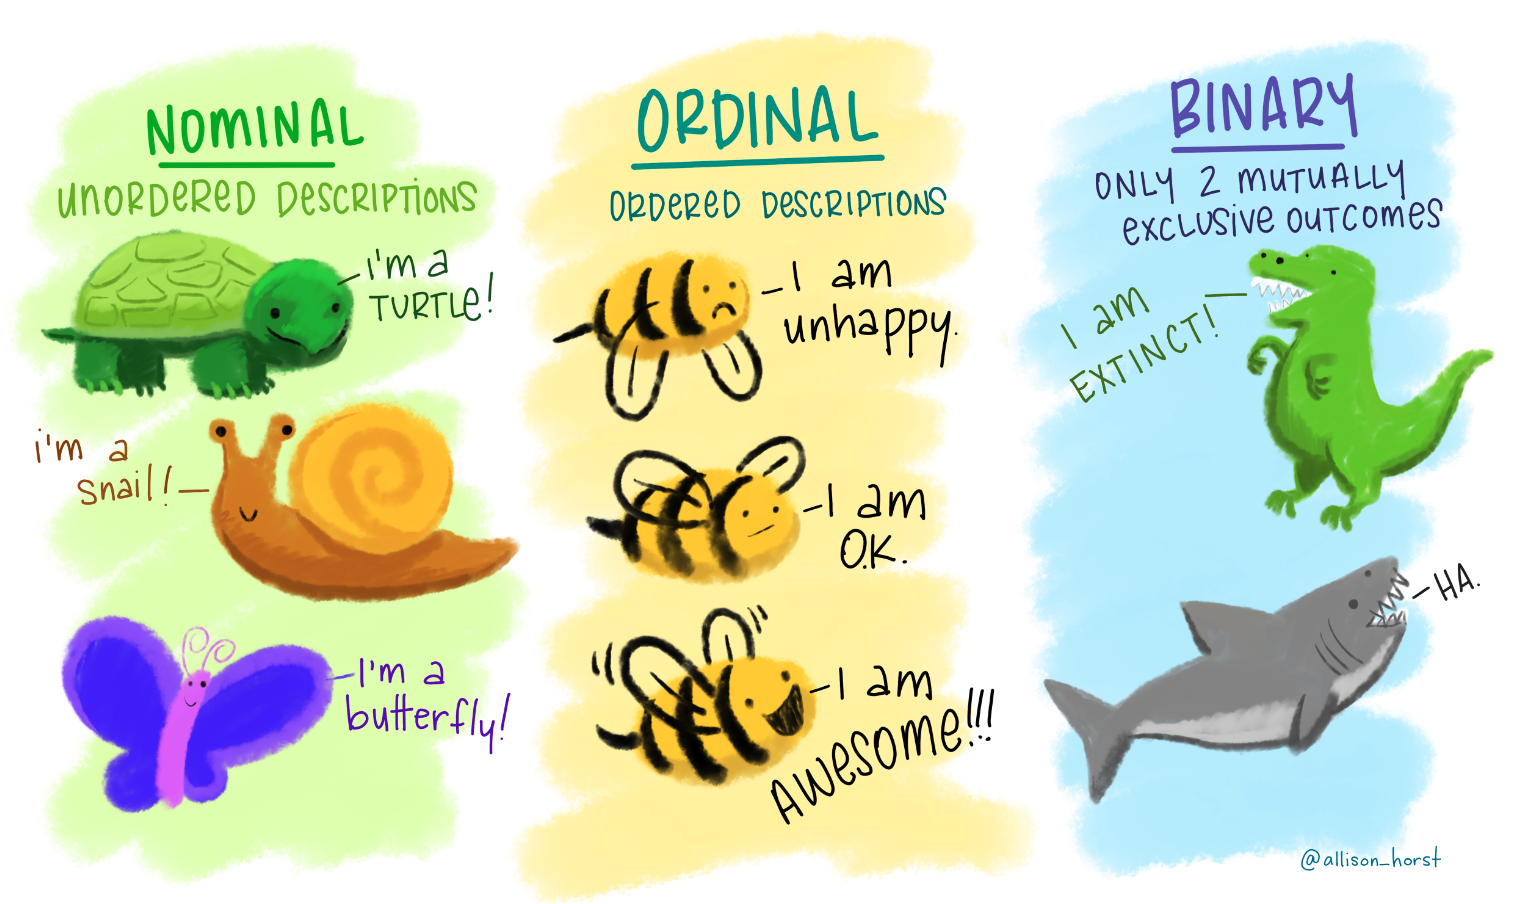 NOMINAL
UNORDERED DESCRIPTIONS
i'm a
TURTLE!
i'm a
snail!
I'm a
butterfly!
ORDINAL
ORDERED DESCRIPTIONS
I am
unhappy.
I am
O.K.
I am
AWESOME!!!
BINARY
ONLY 2 MUTUALLY
EXCLUSIVE OUTCOMES
I am
EXTINCT!
HA.
@allison_horst